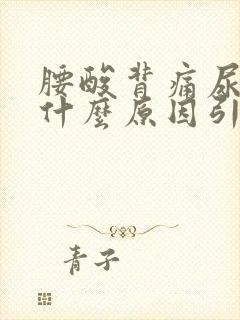 腰酸背痛尿
什麼原因引
青子